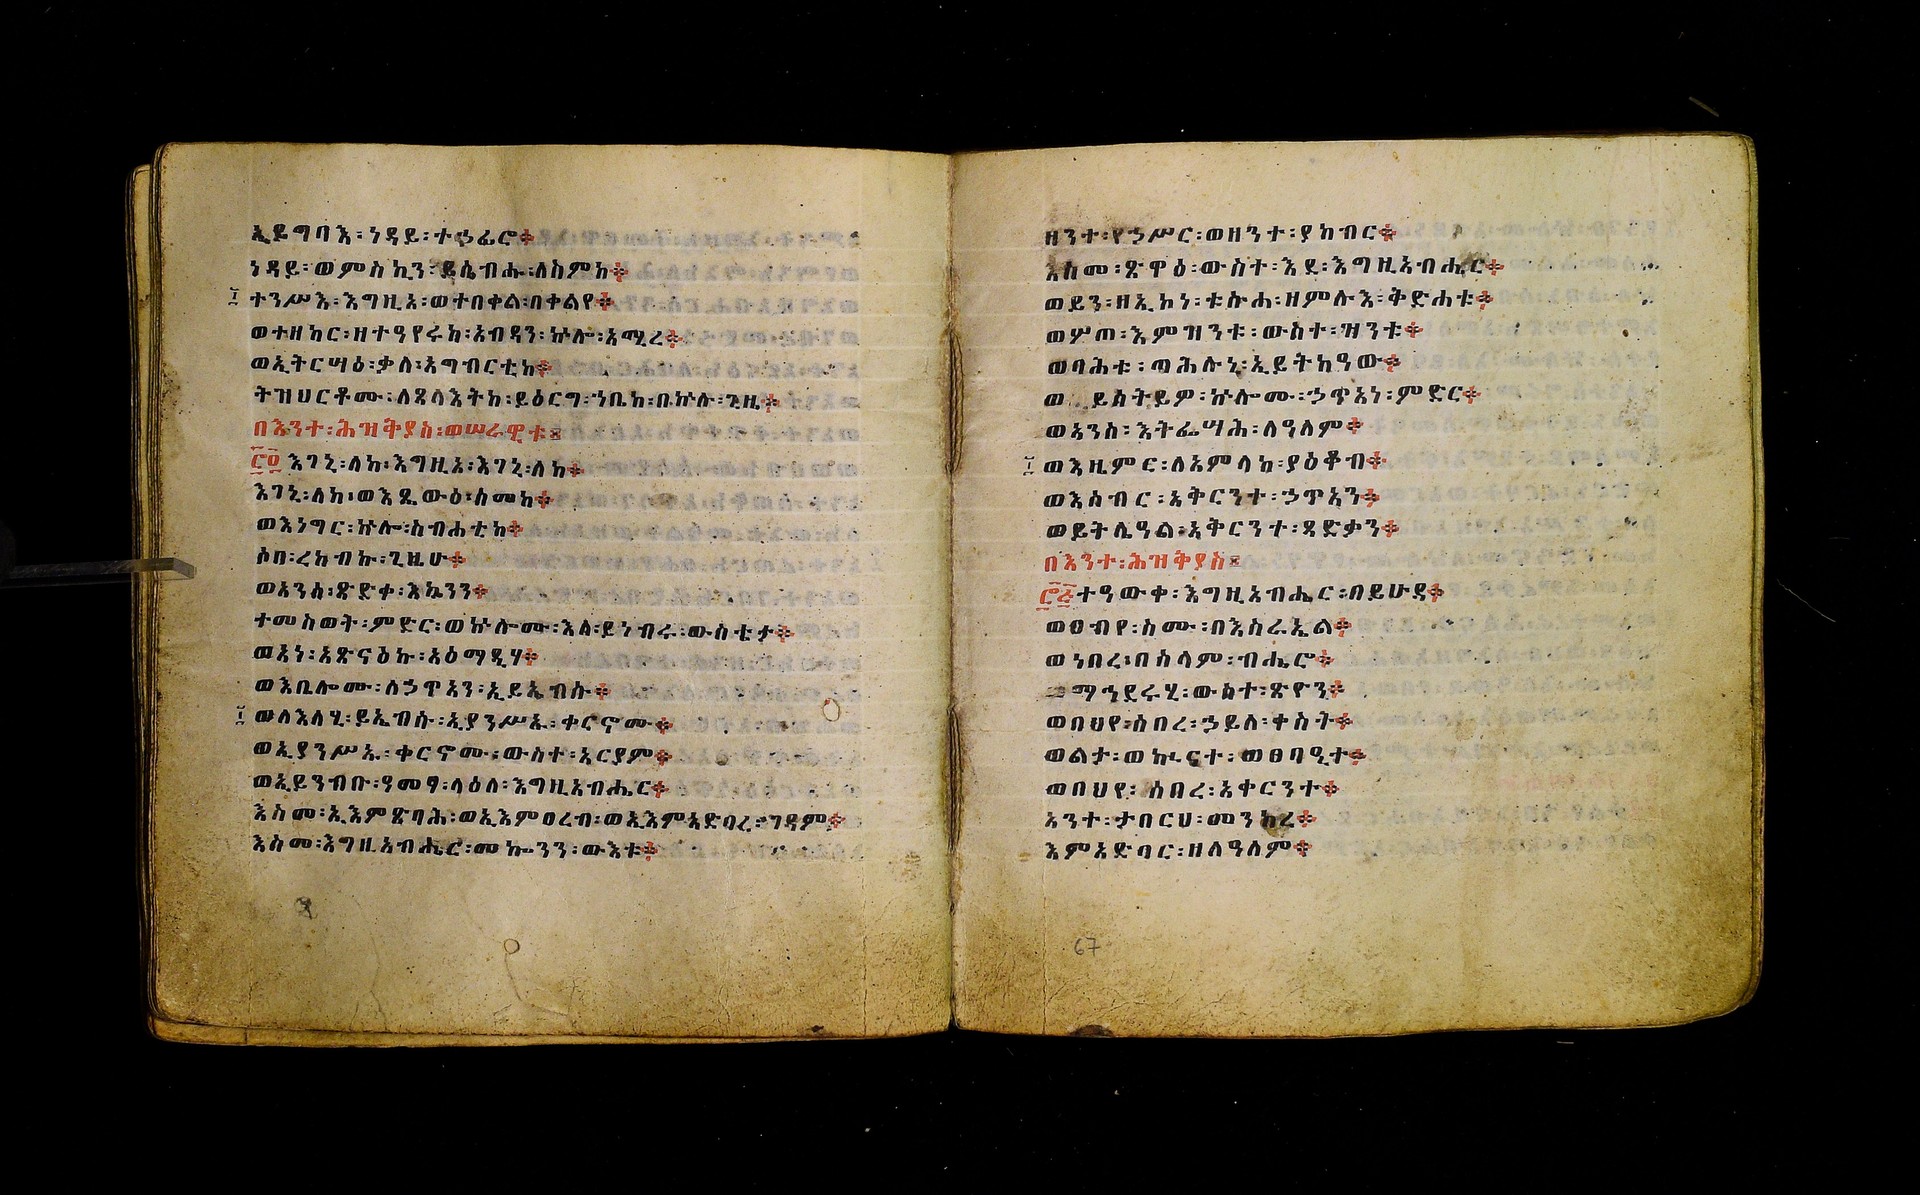 ኢይግባእ፡ነዳይ፡ተኃፊሮ፨
ነዳይ፡ወምስኪን፡ይሴብሑ፡ለስምከ፨
፲
ተንሥእ፡እግዚአ፡ወተበቀል፡በቀልየ፨
ወተዘከር፡ዘተዓየሩከ፡አብዳን፡ኵሎ፡አሚረ፨
ወኢትርሣዕ፡ቃለ፡አግብርቲከ፨
ትዝህርቶሙ፡ለጸላእትከ፡ይዕርግ፡ኀቤከ፡በኵሉ፡ጊዜ፨
በእንተ፡ሕዝቅያስ፡ወሠራዊቱ፡
፸፬ እገኒ፡ለከ፡እግዚአ፡እገኒ፡ለከ፨
እገኒ፡ለከ፡ወእጼውዕ፡ስመከ፨
ወእነግር፡ኵሎ፡ስብሐቲከ፨
ሶበ፡ረከብኩ፡ጊዜሁ፨
ወአንሰ፡ጽድቀ፡እኴንን፨
ተመስወት፡ምድር፡ወኵሎሙ፡እለ፡ይነብሩ፡ውስቴታ፨
ወአነ፡አጽናዕኩ፡አዕማዲሃ፨
ወእቤሎሙ፡ለኃጥኣን፡ኢይኤብሱ፨
፲
ወለእለሂ፡ይኤብሱ፡ኢያንሥኡ፡ቀርኖሙ፨
ወኢያንሥኡ፡ቀርኖሙ፡ውስተ፡አርያም፨
ወኢይንብቡ፡ዓመፃ፡ላዕለ፡እግዚአብሔር፨
እስመ፡ኢእምጽባሕ፡ወኢእምዐረብ፡ወኢእምአድባረ፡ገዳም፨
እስመ፡እግዚአብሔር፡መኰንን፡ውእቱ፨
ዘንተ፡የኃሥር፡ወዘንተ፡ያከብር፨
እስመ፡ጽዋዕ፡ውስተ፡እደ፡እግዚአብሔር፨
ወይን፡ዘኢኮነ፡ቱሱሐ፡ዘምሉእ፡ቅድሐቱ፨
ወሦጠ፡እምዝንቱ፡ውስተ፡ዝንቱ፨
ወባሕቱ፡ጣሕሉኒ፡ኢይትከዓው፨
ወ ይስትይዎ፡ኵሎሙ፡ኃጥአነ፡ምድር፨
ወአንሰ፡እትፌሣሕ፡ለዓለም፨
፲
ወእዜምር፡ለአምላከ፡ያዕቆብ፨
ወእሰብር፡አቅርንተ፡ኃጥኣን፨
ወይትሌዓል፡አቅርንተ፡ጻድቃን፨
በእንተ፡ሕዝቅያስ፡
፸፭ተዓውቀ፡እግዚአብሔር፡በይሁዳ፨
ወዐብየ፡ስሙ፡በእስራኤል፨
ወነበረ፡በሰላም፡ብሔሮ፨
ወማኅደሩሂ፡ውስተ፡ጽዮን፨
ወበህየ፡ሰበረ፡ኃይለ፡ቀስት፨
ወልታ፡ወኲናተ፡ወፀባዒተ፨
ወበህየ፡ሰበረ፡አቀርንተ፨
አንተ፡ታበርህ፡መንክረ፨
እምአድባር፡ዘለዓለም፨
67